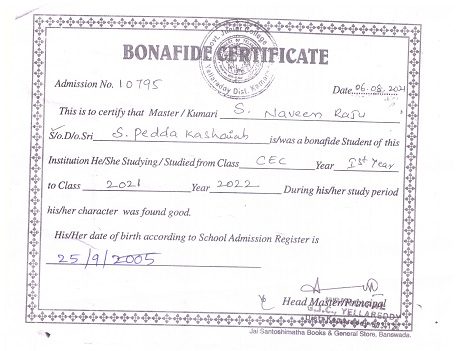 Govt. Junior College
Yellareddy Dist. Kamareddy
BONAFIDE CERTIFICATE
Admission No. 10795
Date 06.08.2021
This is to certify that Master / Kumari S. Naveen Raju
S/o.D/o.Sri S. Pedda Kashaiah is/was a bonafide Student of this
Institution He/She Studying / Studied from Class CEC Year Ist Year
to Class 2021 Year 2022 During his/her study period
his/her character was found good.
His/Her date of birth according to School Admission Register is
25/9/2005
Head Master/Principal
YELLAREDDY
Jai Santoshimatha Books & General Store, Banswada.